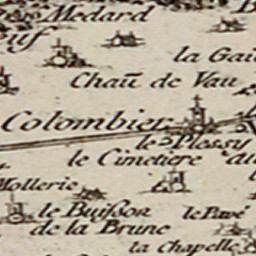 Medard
uyf
la Gau
Chau͞ de Vau
Colombier
le Plessy
le Cimetiere
du
Mollerie
le Buisson
de la Brune
le Pavé
la Chapelle